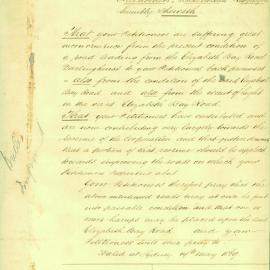 humbly Sheweth
That your Petitioners are suffering great
inconvenience from the present condition of
a road leading from the Elizabeth Bay Road
Darlinghurst to your Petitioners
also from the condition of the said Elizabeth
Bay Road and also from the want of light
in the said Elizabeth Bay Road.
That your Petitioners have contributed and
are now contributing very largely towards the
revenue of the Corporation and that
that a portion of that revenue should be applied
towards improving the roads on which your
Petitioners
Your Petitioners therefore pray that the
above mentioned roads may at once be put
into passable condition and that one or
more lamps may be placed upon the said
Elizabeth Bay Road and your
Petitioners will ever pray &c
Dated at Sydney May 1869